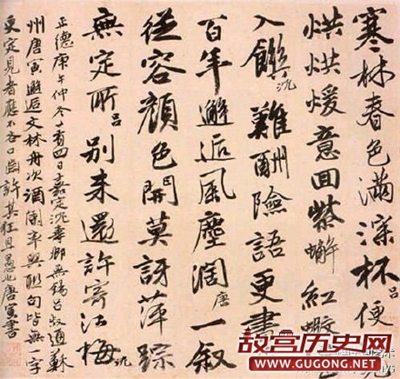 寒林春色滿深杯吕便
烘烘煖意回紫蠏紅
入饌沈難酬險語更書
百年邂逅風塵濶唐一叙
從容顔色開莫訝萍踪
無定所吕別来還許寄江梅沈
正德庚午仲冬廿有四日嘉定沈壽卿無錫吕叔通蘇
州唐寅邂逅文林舟次酒闌率興聯句皆無一字
更定見者應不吝口齒許其狂且愚也唐寅書
故宫历史网
GUGONGLISHI.COM